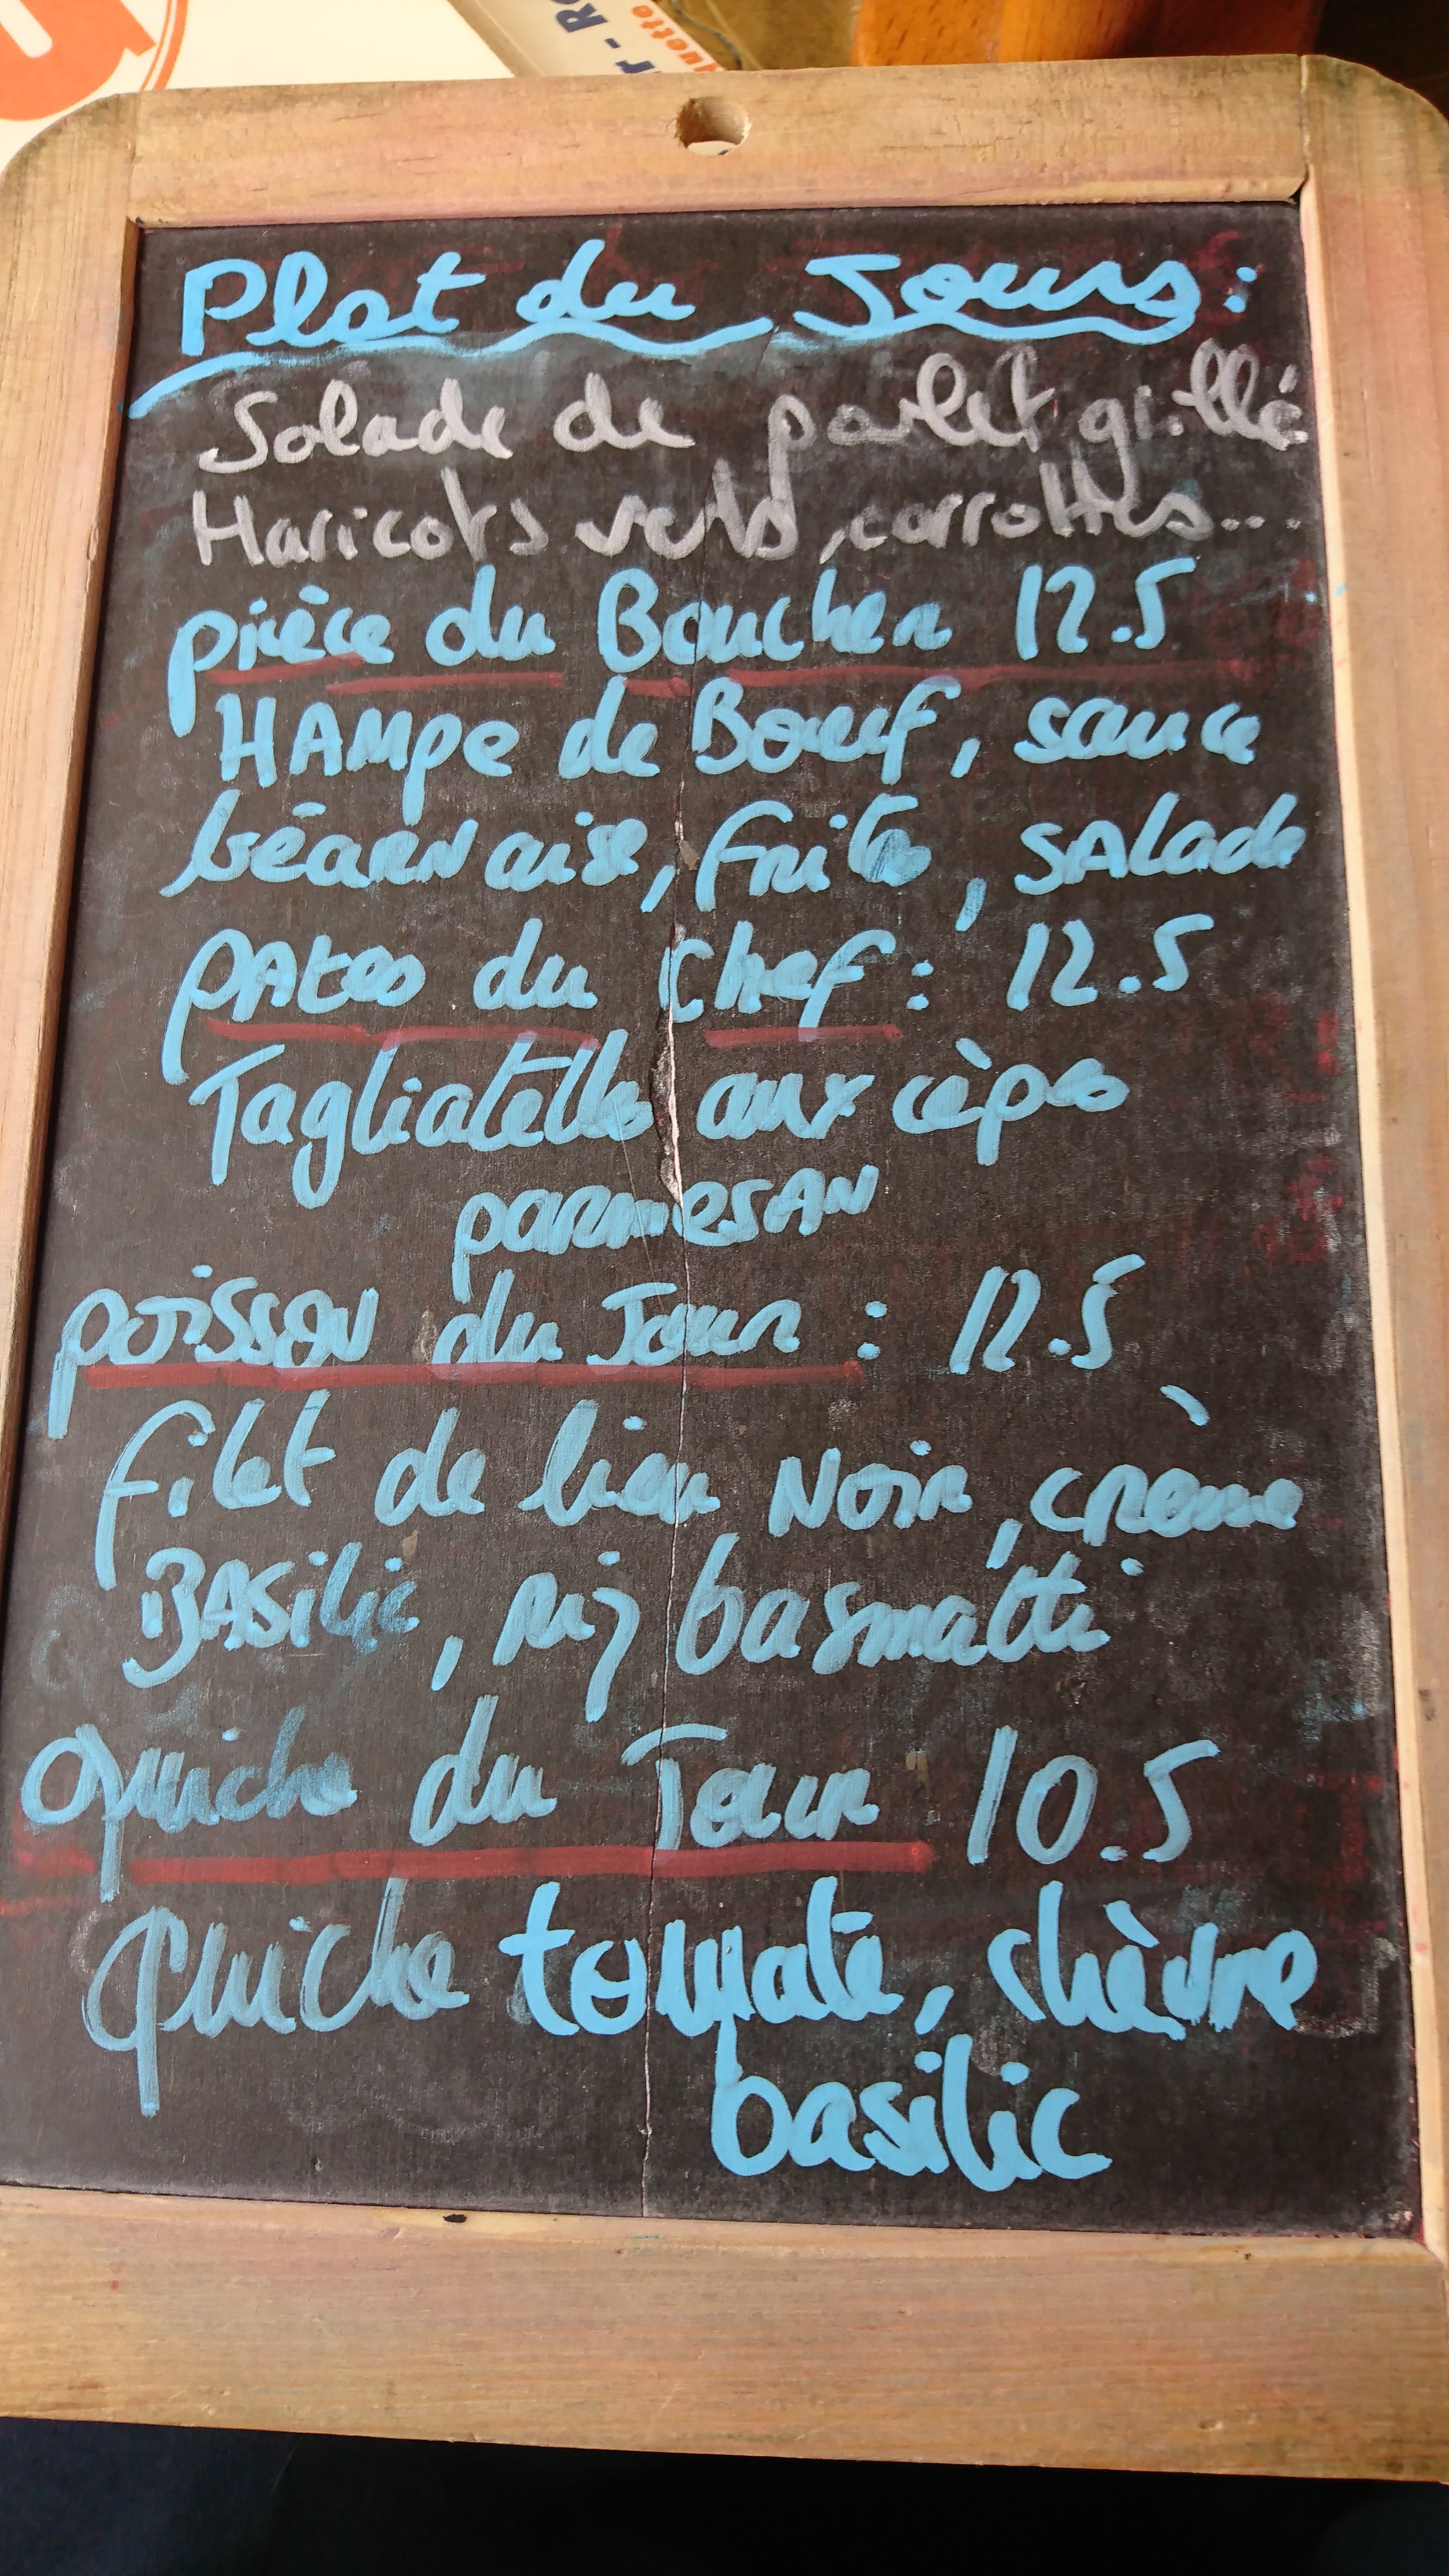 R - RO
quetto
Plat du Jours :
Salade de poulet grillé
Haricots verts, carrottes...
pièce du Boucher 12.5
HAMpe de Boeuf, sauce
béarnaise, frites, SAlade
pAtes du chef : 12.5
Tagliatelles aux cèpes
parmesAN
poisson du Jour : 12.5
filet de lieu Noir, crème
BASilic, riz basmatti
Quiche du Jour 10.5
Quiche tomate, chèvre
basilic